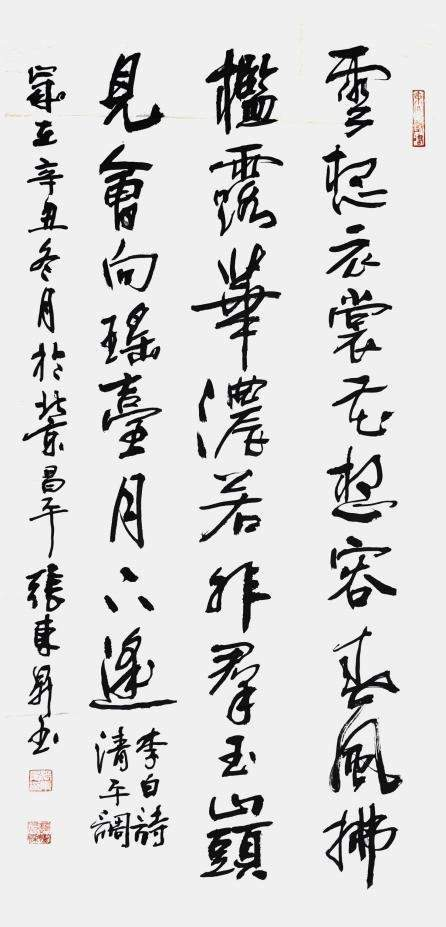 雲想衣裳花想容春風拂
檻露華濃若非羣玉山頭
見會向瑤臺月下逢
李白詩
清平調
歲在辛丑冬月於北京昌平張東昇書